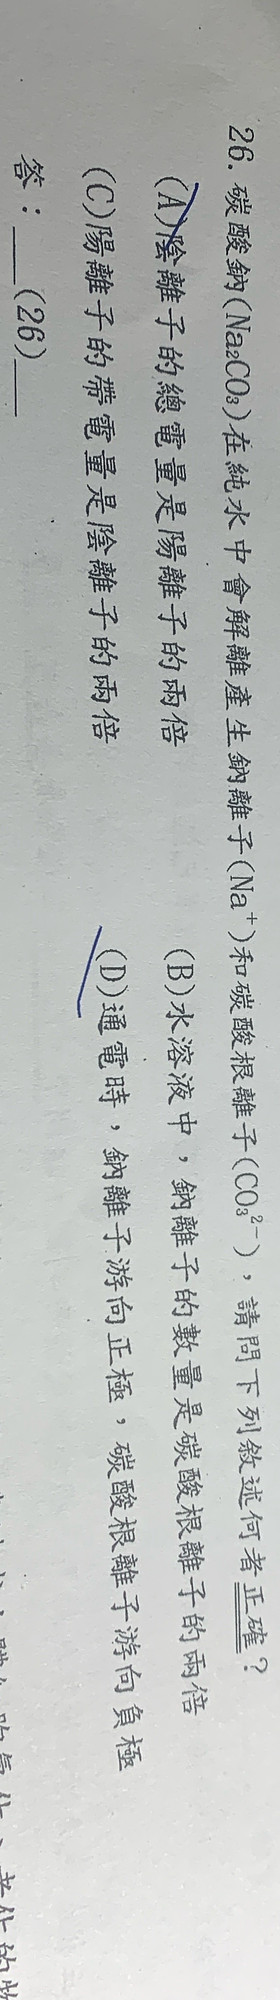 26. 碳酸鈉(Na₂CO₃)在純水中會解離產生鈉離子(Na⁺)和碳酸根離子(CO₃²⁻)，請問下列敘述何者正確？
(A)陰離子的總電量是陽離子的兩倍 (B)水溶液中，鈉離子的數量是碳酸根離子的兩倍
(C)陽離子的帶電量是陰離子的兩倍 (D)通電時，鈉離子游向正極，碳酸根離子游向負極
答：___(26)___